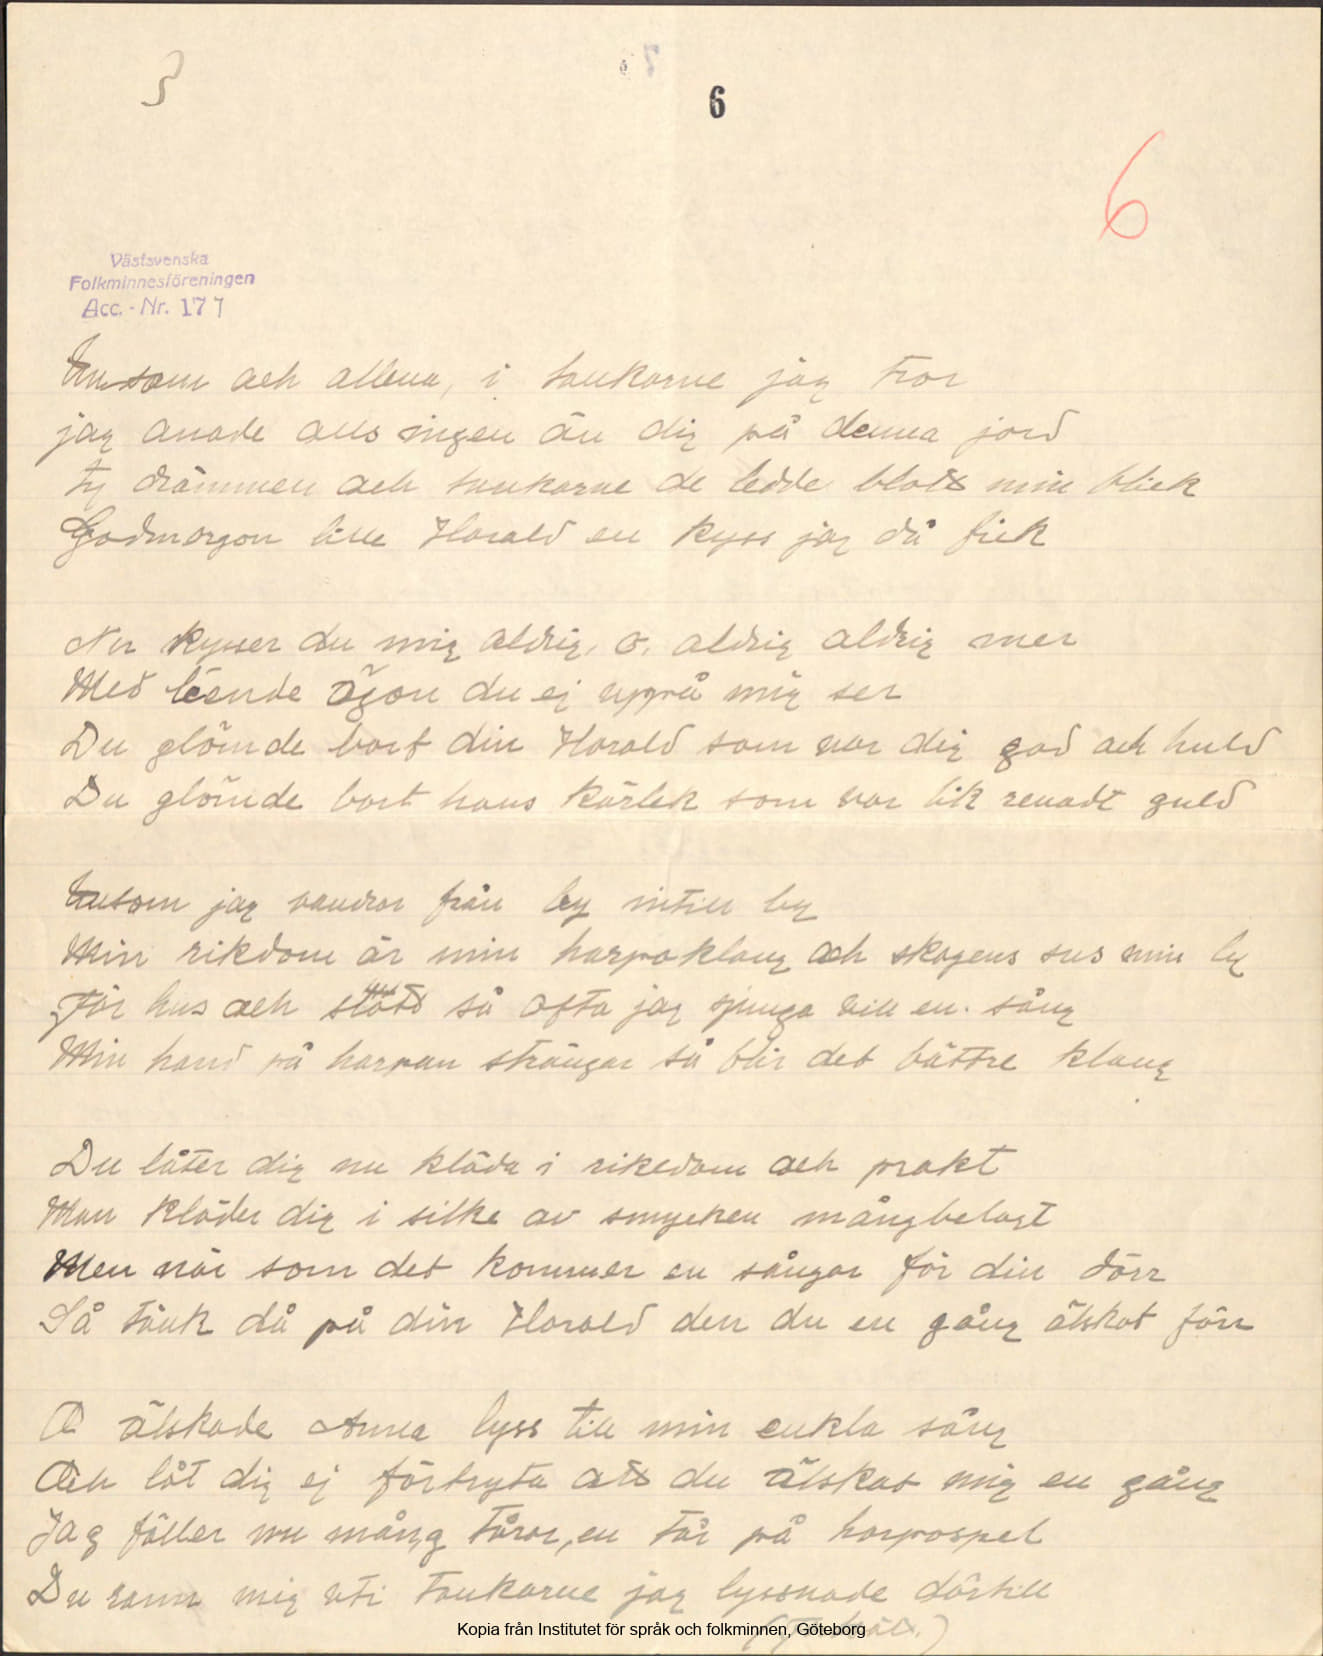 3
6
6
Västsvenska
Folkminnesföreningen
Acc.-Nr. 177
Ensam och allena, i tankarne jag tror
jag anade alls ingen än dig på denna jord
ty drömmen och tankarne de ledde blott min blick
Godmorgon lille Harald en kyss jag då fick
Nu kysser du mig aldrig, o, aldrig aldrig mer
Med leende ögon du ej uppå mig ser
Du glömde bort din Harald som var dig god och huld
Du glömde bort hans kärlek som var lik renadt guld
Ensam jag vandrar från by intill by
Min rikdom är min harpoklang och skogens sus min ly
För hus och slott så ofta jag sjunga vill en sång
Min hand på harpan strängar så blir det bättre klang
Du låter dig nu kläda i rikedom och prakt
Man kläder dig i silke av smycken mångbelagt
Men när som det kommer en sångar för din dörr
Så tänk då på din Harald den du en gång älskat förr
O älskade Anna lyss till min enkla sång
Och låt dig ej förtryta att du älskat mig en gång
Jag fäller nu mång tårar, en tår på harpospel
Du vann mig uti tankarne jag lyssnade därtill
Kopia från Institutet för språk och folkminnen, Göteborg